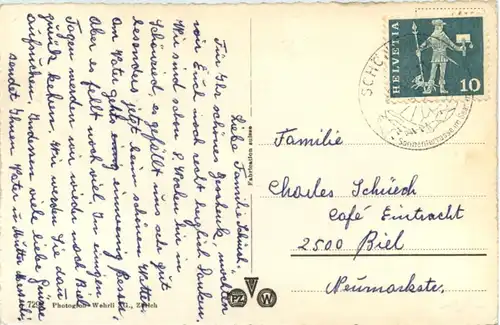 Liebe Familie Schüch!
Für Ihr schönes Geschenk, möchten
wir Euch noch recht herzlich danken.
Wir sind schon 8 Wochen hier in
Schönried, es gefällt uns sehr gut
besonders jetzt beim schönen Wetter.
Am Vater gehts einwenig besser,
Aber es fehlt noch viel, In einigen
Tagen werden wir wieder nach Biel
zurück kehren. Wir werden Sie dann
aufsuchen. Indessen viele liebe Grüsse
sendet Ihnen Vater u. Mutter
729
Photoglob-Wehrli AG., Zürich
Fabrication suisse
PZ W
HELVETIA
10
SCHÖN
Sonnenterrasse
Familie
Charles Schüech
Café Eintracht
2500 Biel
Neumarkstr.